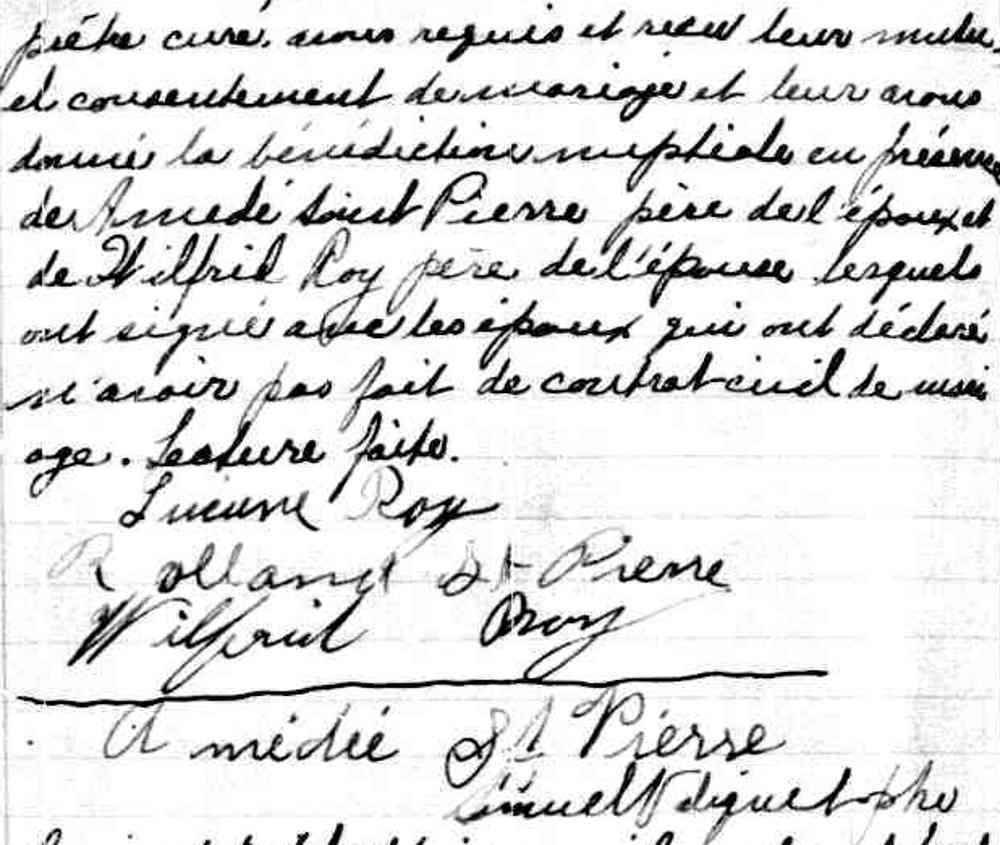 prêtre curé, avons requis et recu leur mutu-
el consentement de mariage et leur avons
donné la bénédiction nuptiale en présence
de Amedé Saint Pierre père de l'époux et
de Wilfrid Roy père de l'épouse lesquels
ont signé avec les époux qui ont déclaré
n'avoir pas fait de contrat civil de mari
age. Lecture faite.
Lucienne Roy
Rolland St-Pierre
Wilfrid Roy
Amédée St Pierre
ptre